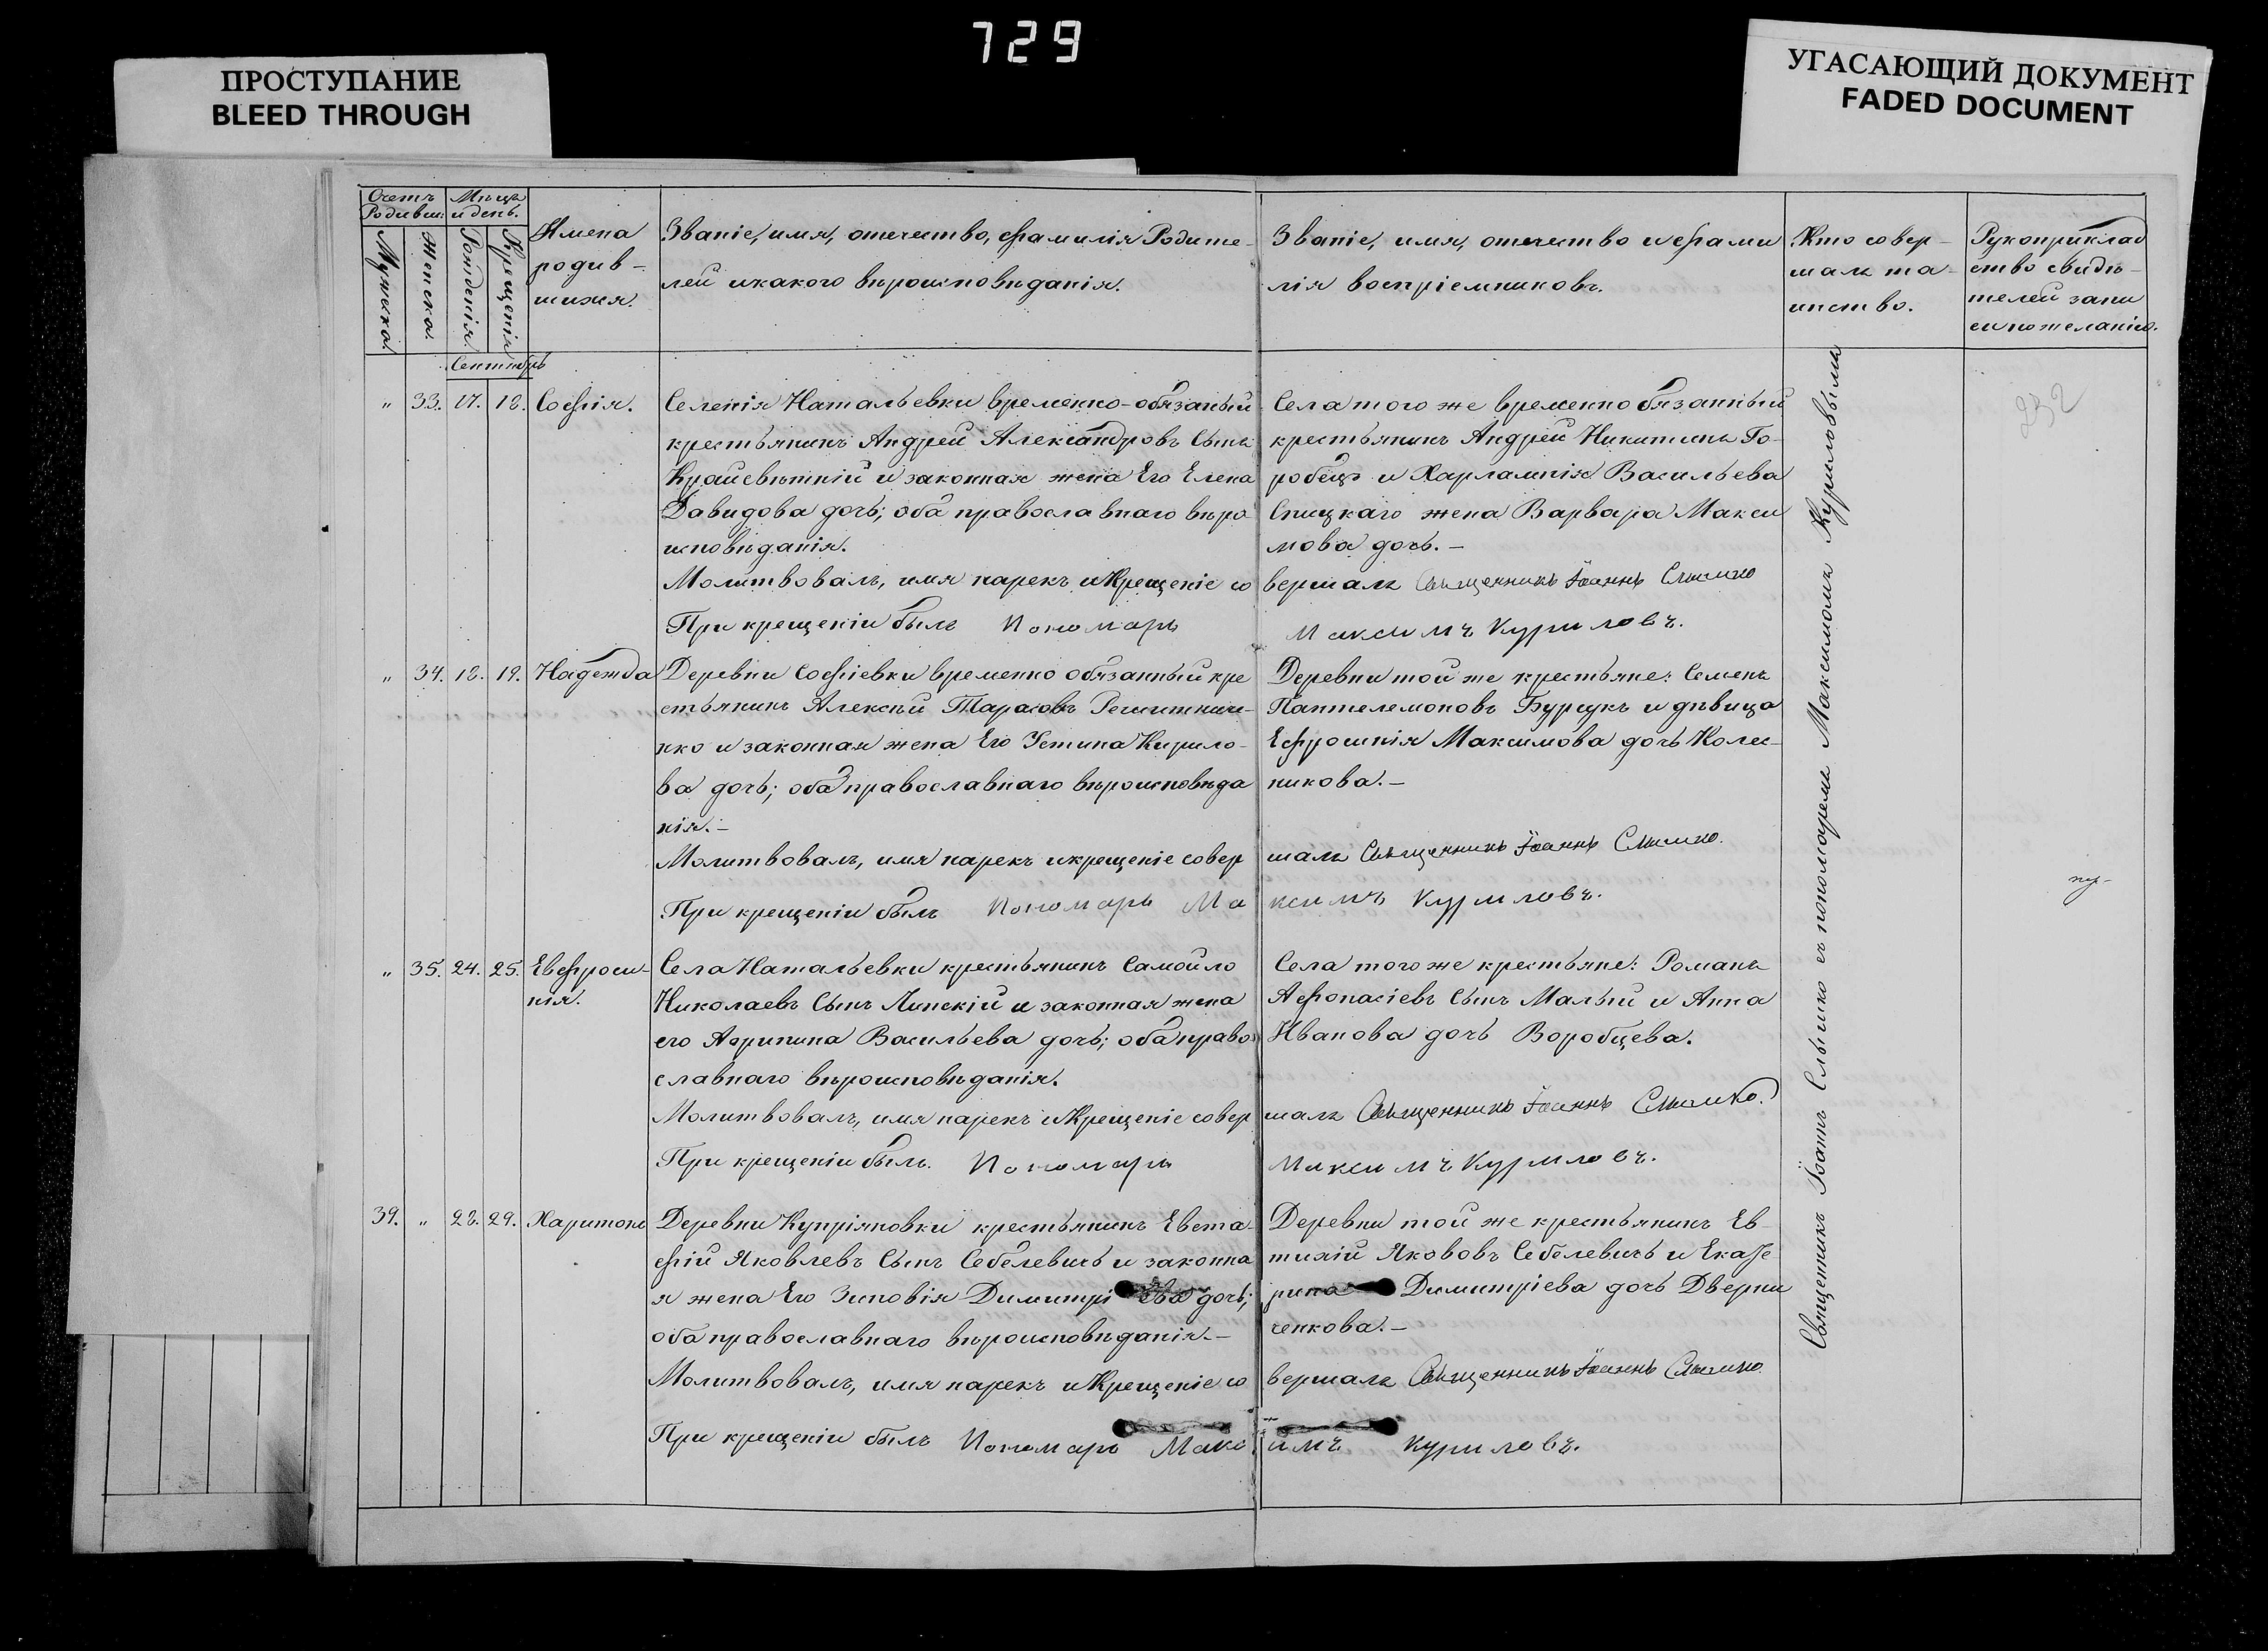 729
ПРОСТУПАНИЕ
BLEED THROUGH
УГАСАЮЩИЙ ДОКУМЕНТ
FADED DOCUMENT
Счетъ Родивш:
Мѣсяц и день.
Мужеска.
Женска.
Рожденія.
Крещенія
Имена
родив-
шихся.
Званіе, имя, отечество, фамилія Родите-
лей и какого вѣроисповѣданія.
Званіе, имя, отечество и фами
лія воспріемниковъ.
Кто совер-
шалъ та-
инство.
Рукоприклад
ство свидѣ-
телей запи
си по желанію.
Сентябрь
" 33. 17. 18. Софія.
Селенія Натальевки временно-обязаный
крестьянинъ Андрей Александровъ Сынъ
Крайсвѣтній и законная жена Его Елена
Давидова дочь; оба православнаго вѣро
исповѣданія.
Молитвовалъ, имя нарекъ и Крещеніе со
При крещеніи былъ Пономарь
Села того же временно обязанный
крестьянинъ Андрей Никитинъ Го-
робецъ и Харлампія Васильева
Спицкаго жена Варвара Макси
мова дочь.-
вершалъ Священникъ Іоаннъ Слышко
Максимъ Куриловъ.
232
" 34. 18. 19. Надежда
Деревни Софіевки временно обязанный кре
стьянинъ Алексѣй Тарасовъ Решитниче-
нко и законная жена Его Устина Кирило-
ва дочь; оба православнаго вѣроисповѣда
нія.-
Молитвовалъ, имя нарекъ и крещеніе совер
При крещеніи былъ Пономарь Ма
Деревни той же крестьяне: Семенъ
Пантелемоновъ Бурцукъ и дѣвица
Ефросинія Максимова дочь Колес-
никова.-
шалъ Священникъ Іоаннъ Слышко.
ксимъ Куриловъ.
" 35. 24. 25. Евфроси-
нія.
Села Натальевки крестьянинъ Самойло
Николаевъ Сынъ Линскій и законная жена
его Агрипина Васильева дочь; оба право
славнаго вѣроисповѣданія.
Молитвовалъ, имя нарекъ и Крещеніе совер
При крещеніи былъ. Пономарь
Села того же крестьяне: Романъ
Афонасіевъ Сынъ Малый и Анна
Иванова дочь Воробцева.
шалъ Священникъ Іоаннъ Слышко.
Максимъ Куриловъ.
39. " 28. 29. Харитонъ
Деревни Купріяновки крестьянинъ Евста-
фій Яковлевъ Сынъ Себелевичъ и законна
я жена Его Зиновія Димитріева дочь;
оба православнаго вѣроисповѣданія.-
Молитвовалъ, имя нарекъ и Крещеніе со
При крещеніи былъ Пономарь Макс
Деревни той же крестьянинъ Ев-
тихій Якововъ Себелевичъ и Екате
рина Димитріева дочь Дверни
ченкова.-
вершалъ Священникъ Іоаннъ Слышко
имъ Куриловъ.
Священникъ Іоаннъ Слышко съ пономаремъ Максимомъ Куриловымъ